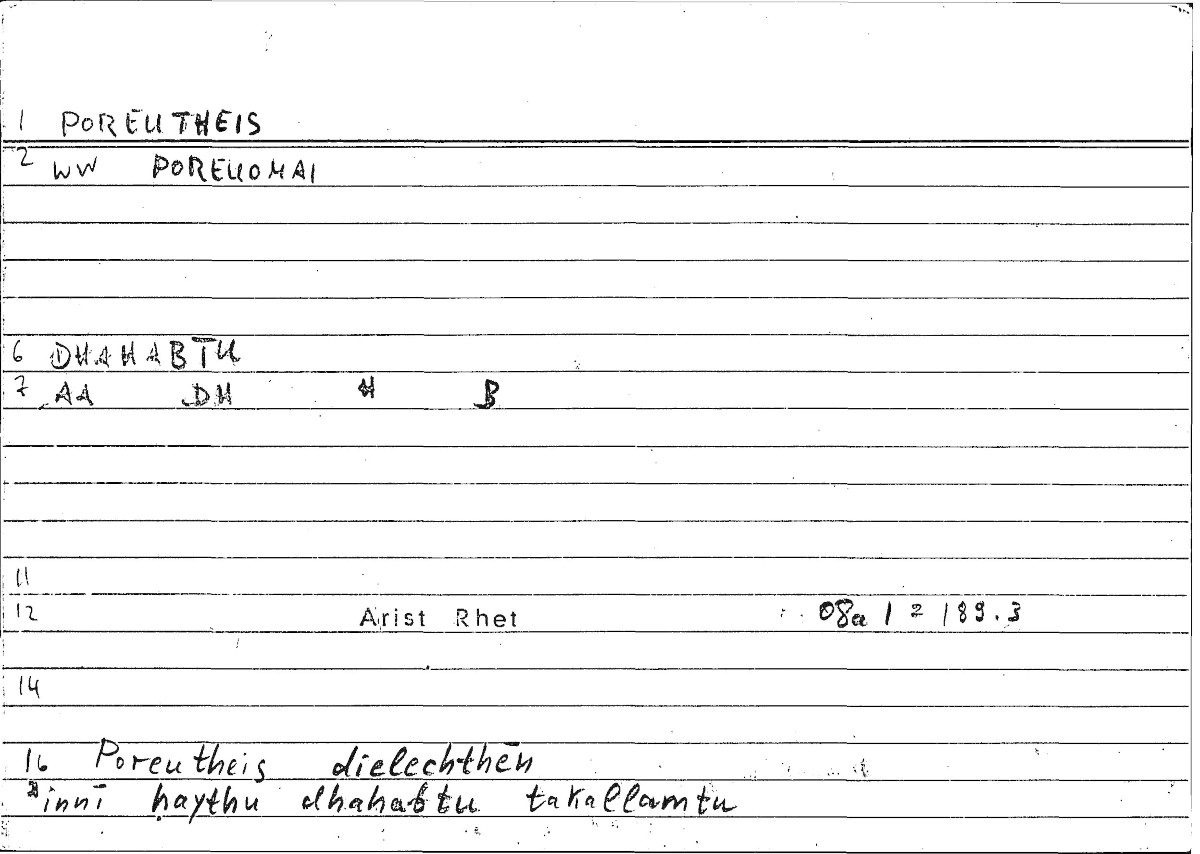 1 POREUTHEIS
2 WW POREUOMAI
6 DHAHABTU
7 AA DH H B
11
12 Arist Rhet 08a 1 = 189.3
14
16 Poreutheis dielechthēn
innī ḥaythu dhahabtu takallamtu